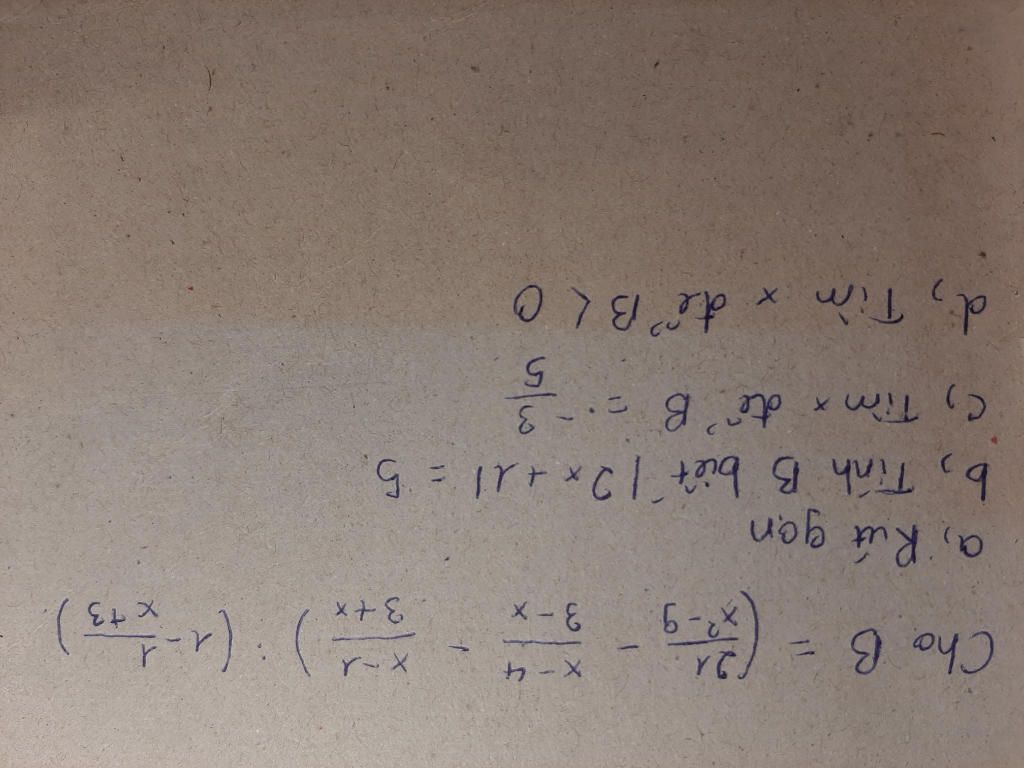 Cho B = (21/(x²-9) - (x-4)/(3-x) - (x-1)/(3+x)) : (1 - 1/(x+3))
a, Rút gọn
b, Tính B biết |2x+1| = 5
c, Tìm x để B = -3/5
d, Tìm x để B < 0